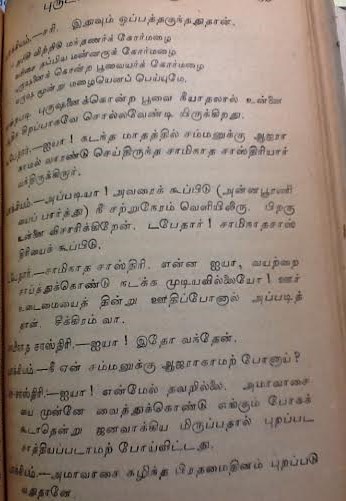 க்யம்.—சரி. இதுவும் ஒப்பத்தகுந்ததுதான்.
மன்னருக் கோர்மழை
கொன்ற பூவையர்க் கோர்மழை
மூன்று மழையெனப் பெய்யுமே.
புருஷனைக்கொன்ற பூவை நீயாதலால் உன்னை
சிறப்பாகவே சொல்லவேண்டி யிருக்கிறது.
தார்.—ஐயா! கடந்த மாதத்தில் சம்மனுக்கு ஆஜரா
காமல் வாரண்டு செய்திருந்த சாமிநாத சாஸ்திரியார்
வந்திருக்கிறார்.
அப்படியா! அவரைக் கூப்பிடு (அன்னபூரணி
யைப் பார்த்து) நீ சற்றுநேரம் வெளியிலிரு. பிறகு
உன்னை விசாரிக்கிறேன். டபேதார்! சாமிநாதசாஸ்
திரியைக் கூப்பிடு.
சாமிநாத சாஸ்திரி. என்ன ஐயா, வயற்றை
சாய்த்துக்கொண்டு நடக்க முடியவில்லையோ! ஊர்
உடைமையைத் தின்று ஊதிப்போனால் அப்படித்
தான். சீக்கிரம் வா.
சாஸ்திரி.—ஐயா! இதோ வந்தேன்.
க்யம்.—நீ ஏன் சம்மனுக்கு ஆஜராகாமற் போனாய்?
சாஸ்திரி.—ஐயா! என்மேல் தவறில்லை. அமாவாசை
யை முன்னே வைத்துக்கொண்டு எங்கும் போகக்
கூடாதென்று ஜனவாக்கிய மிருப்பதால் புறப்பட
சாத்தியப்படாமற் போய்விட்டது.
க்யம்.—அமாவாசை கழிந்த பிரதமைதினம் புறப்படு
வதுதானே.